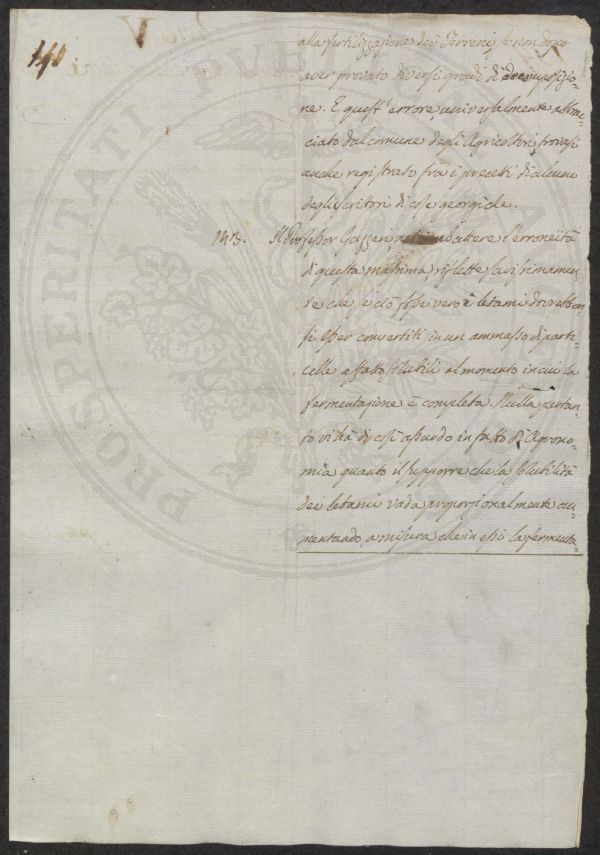 140
alla fertilizzazione dei Terreni, se non dopo
aver provato diversi gradi di decomposizio=
ne. E quest'errore, universalmente abbrac=
ciato dal comune degli Agricoltori, trovasi
anche registrato fra i precetti di alcuno
degli scrittori di cose georgiche.
143. Il Professor Gazzeri nel combattere l'erroneità
di questa massima, riflette saviissimamen=
te che se ciò fosse vero i letami dovrebbon=
si esser convertiti in un ammasso di parti=
celle affatto solubili al momento in cui la
fermentazione è completa. Nulla pertan=
to vi hà di così assurdo in fatto di Agrono=
mia quanto il supporre che la solubilità
dei letami vada proporzionalmente au=
mentando, a misura che in essi la fermenta=
PROSPERITATI PUBLICAE